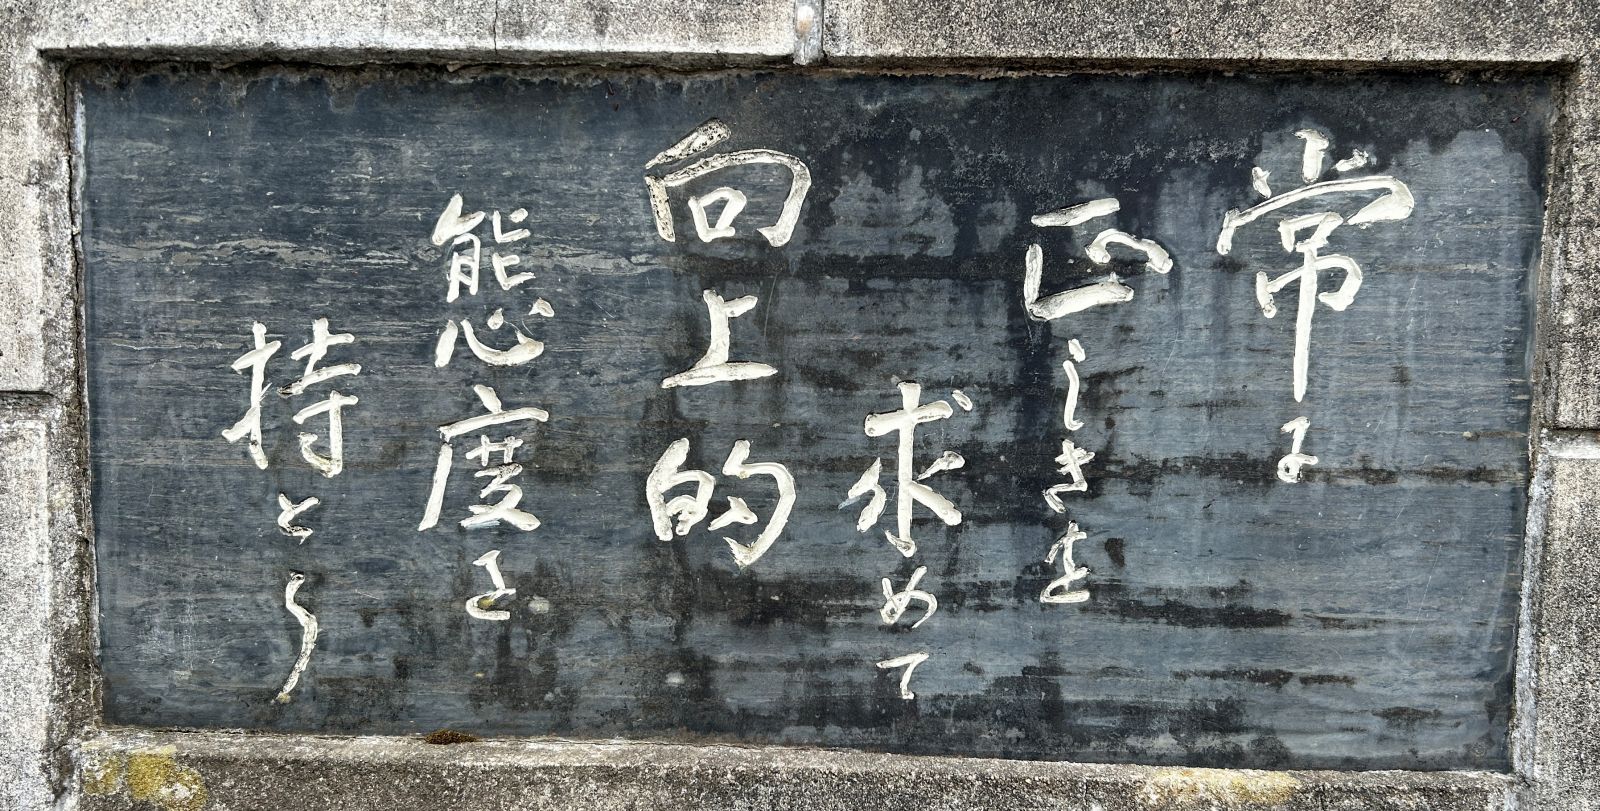 常に
正しきを
求めて
向上的
態度を
持とう